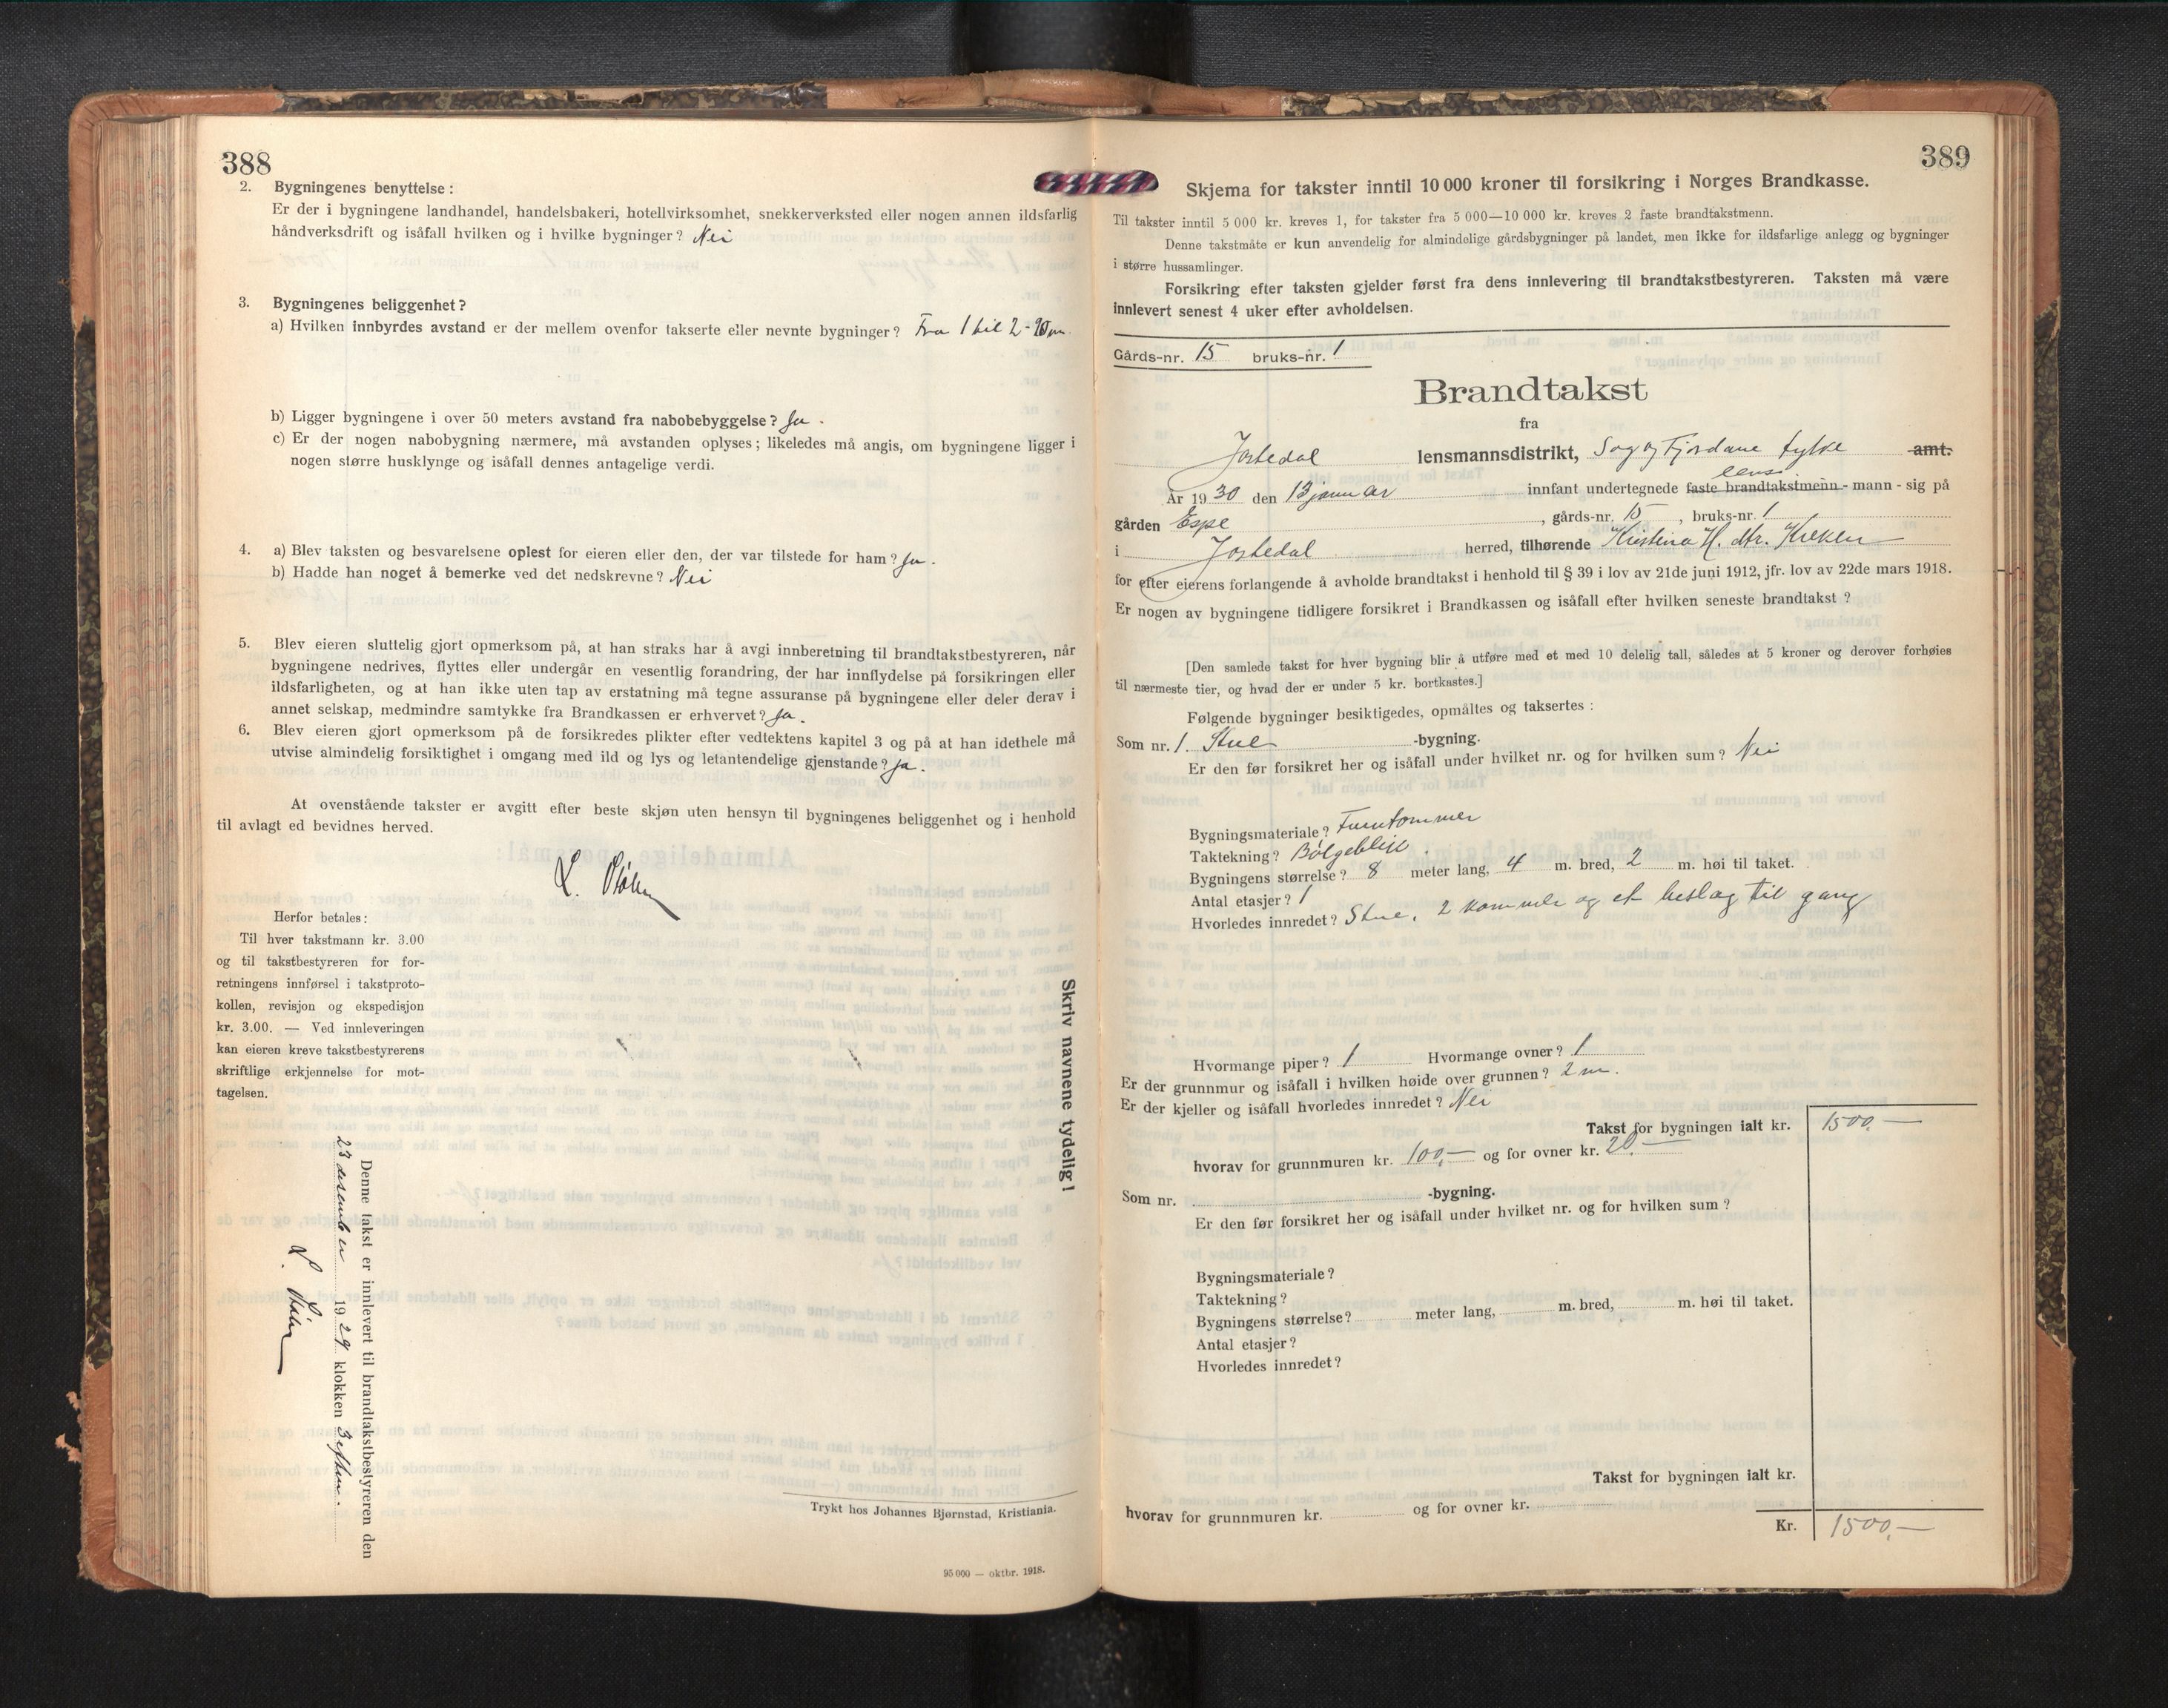 388
2. Bygningenes benyttelse:
Er der i bygningene landhandel, handelsbakeri, hotellvirksomhet, snekkerverksted eller nogen annen ildsfarlig
håndverksdrift og isåfall hvilken og i hvilke bygninger? Nei
3. Bygningenes beliggenhet?
a) Hvilken innbyrdes avstand er der mellem ovenfor takserte eller nevnte bygninger? Fra 1 til 2-
b) Ligger bygningene i over 50 meters avstand fra nabobebyggelse? Ja.
c) Er der nogen nabobygning nærmere, må avstanden oplyses; likeledes må angis, om bygningene ligger i
nogen større husklynge og isåfall dennes antagelige verdi.
4. a) Blev taksten og besvarelsene oplest for eieren eller den, der var tilstede for ham? Ja.
b) Hadde han noget å bemerke ved det nedskrevne? Nei
5. Blev eieren sluttelig gjort opmerksom på, at han straks har å avgi innberetning til brandtakstbestyreren, når
bygningene nedrives, flyttes eller undergår en vesentlig forandring, der har innflydelse på forsikringen eller
ildsfarligheten, og at han ikke uten tap av erstatning må tegne assuranse på bygningene eller deler derav i
annet selskap, medmindre samtykke fra Brandkassen er erhvervet? Ja.
6. Blev eieren gjort opmerksom på de forsikredes plikter efter vedtektens kapitel 3 og på at han idethele må
utvise almindelig forsiktighet i omgang med ild og lys og letantendelige gjenstande? Ja.
At ovenstående takster er avgitt efter beste skjøn uten hensyn til bygningenes beliggenhet og i henhold
til avlagt ed bevidnes herved.
Herfor betales:
Til hver takstmann kr. 3.00
og til takstbestyreren for for-
retningens innførsel i takstproto-
kollen, revisjon og ekspedisjon
kr. 3.00. — Ved innleveringen
kan eieren kreve takstbestyrerens
skriftlige erkjennelse for mot-
tagelsen.
Skriv navnene tydelig!
Denne takst er innlevert til brandtakstbestyreren den
23 desember 1929 klokken 3 eftm.
Trykt hos Johannes Bjørnstad, Kristiania.
95 000 — oktbr. 1918.
389
Skjema for takster inntil 10 000 kroner til forsikring i Norges Brandkasse.
Til takster inntil 5 000 kr. kreves 1, for takster fra 5 000—10 000 kr. kreves 2 faste brandtakstmenn.
Denne takstmåte er kun anvendelig for almindelige gårdsbygninger på landet, men ikke for ildsfarlige anlegg og bygninger
i større hussamlinger.
Forsikring efter taksten gjelder først fra dens innlevering til brandtakstbestyreren. Taksten må være
innlevert senest 4 uker efter avholdelsen.
Gårds-nr. 15 bruks-nr. 1
Brandtakst
fra
Jostedal lensmannsdistrikt, Sogn og Fjordane fylke amt.
lens
År 1930 den 13 januar innfant undertegnede faste brandtakstmenn - mann - sig på
gården Espe, gårds-nr. 15, bruks-nr. 1
i Jostedal herred, tilhørende Kristina H. dtr.
for efter eierens forlangende å avholde brandtakst i henhold til § 39 i lov av 21de juni 1912, jfr. lov av 22de mars 1918.
Er nogen av bygningene tidligere forsikret i Brandkassen og isåfall efter hvilken seneste brandtakst?
[Den samlede takst for hver bygning blir å utføre med et med 10 delelig tall, således at 5 kroner og derover forhøies
til nærmeste tier, og hvad der er under 5 kr. bortkastes.]
Følgende bygninger besiktigedes, opmåltes og taksertes:
Som nr. 1. Stue -bygning.
Er den før forsikret her og isåfall under hvilket nr. og for hvilken sum? Nei
Bygningsmateriale? Furutømmer
Taktekning? Bølgeblikk.
Bygningens størrelse? 8 meter lang, 4 m. bred, 2 m. høi til taket.
Antal etasjer? 1
Hvorledes innredet? Stue, 2 kammer og et beslag til gang
Hvormange piper? 1 Hvormange ovner? 1
Er der grunnmur og isåfall i hvilken høide over grunnen? 2 m.
Er der kjeller og isåfall hvorledes innredet? Nei
Takst for bygningen ialt kr. 1500,—
hvorav for grunnmuren kr. 100,— og for ovner kr. 20,—
Som nr. -bygning.
Er den før forsikret her og isåfall under hvilket nr. og for hvilken sum?
Bygningsmateriale?
Taktekning?
Bygningens størrelse? meter lang, m. bred, m. høi til taket.
Antal etasjer?
Hvorledes innredet?
Takst for bygningen ialt kr.
hvorav for grunnmuren kr. og for ovner kr.
Kr. 1500,—